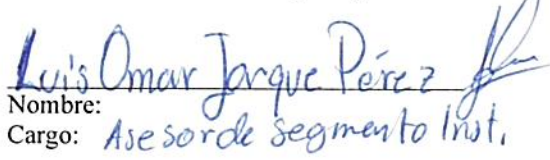 Luis Omar Jarque Pérez
Nombre:
Cargo: Asesor de Segmento Inst.